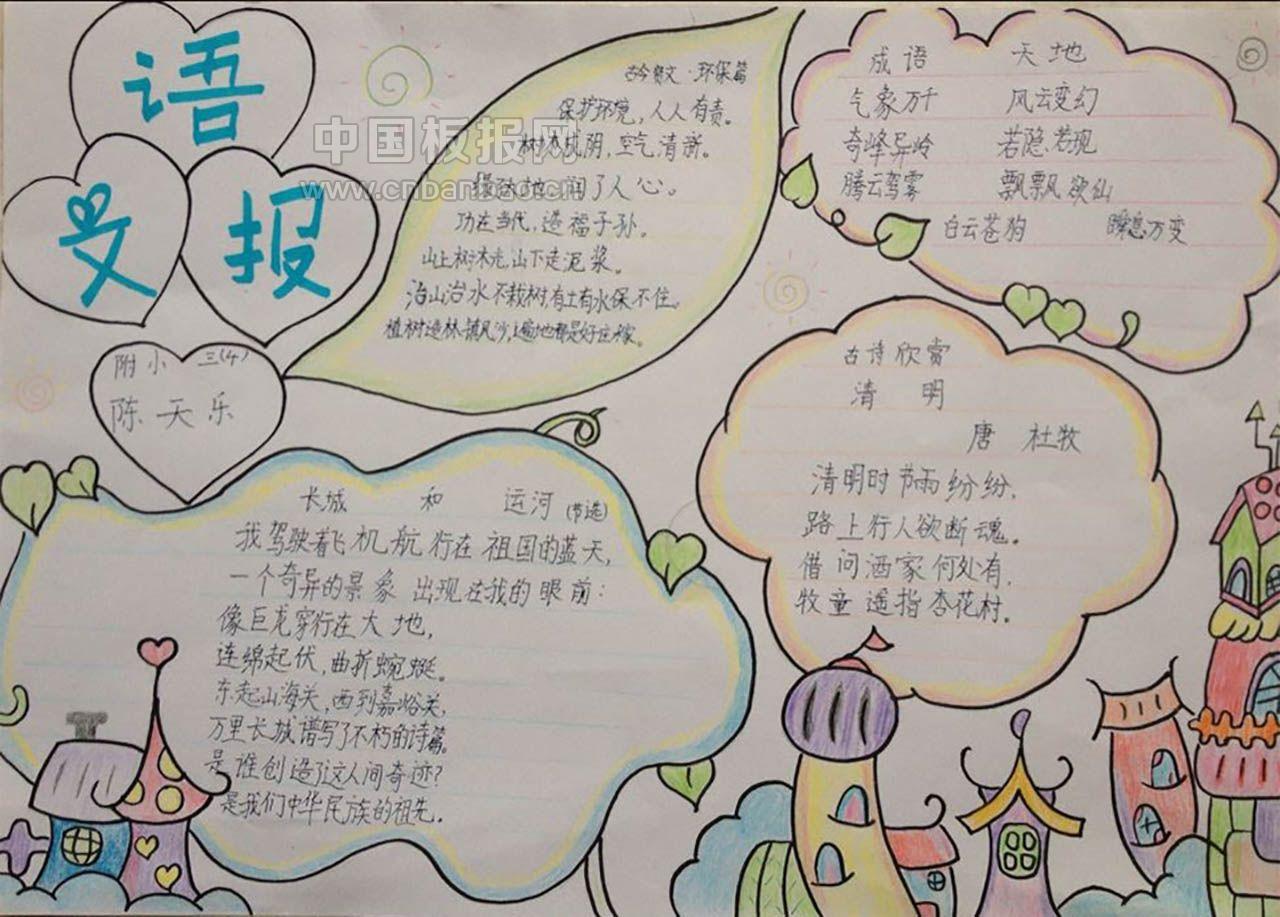 语
文报
附小 三(4)
陈天乐
古今贤文·环保篇
保护环境,人人有责。
树木成阴,空气清新。
润了人心。
功在当代,造福子孙。
山上树木光,山下走泥浆。
治山治水不栽树,有土有水保不住。
植树造林,镇风沙,遍地都是好庄稼。
成语 天地
气象万千 风云变幻
奇峰异岭 若隐若现
腾云驾雾 飘飘欲仙
白云苍狗 瞬息万变
古诗欣赏
清 明
唐 杜牧
清明时节雨纷纷,
路上行人欲断魂。
借问酒家何处有,
牧童遥指杏花村。
长城 和 运河(节选)
我驾驶着飞机航行在祖国的蓝天,
一个奇异的景象出现在我的眼前:
像巨龙穿行在大地,
连绵起伏,曲折蜿蜒。
东起山海关,西到嘉峪关,
万里长城谱写了不朽的诗篇。
是谁创造了这人间奇迹?
是我们中华民族的祖先。
中国板报网
www.cnbanbao.cn